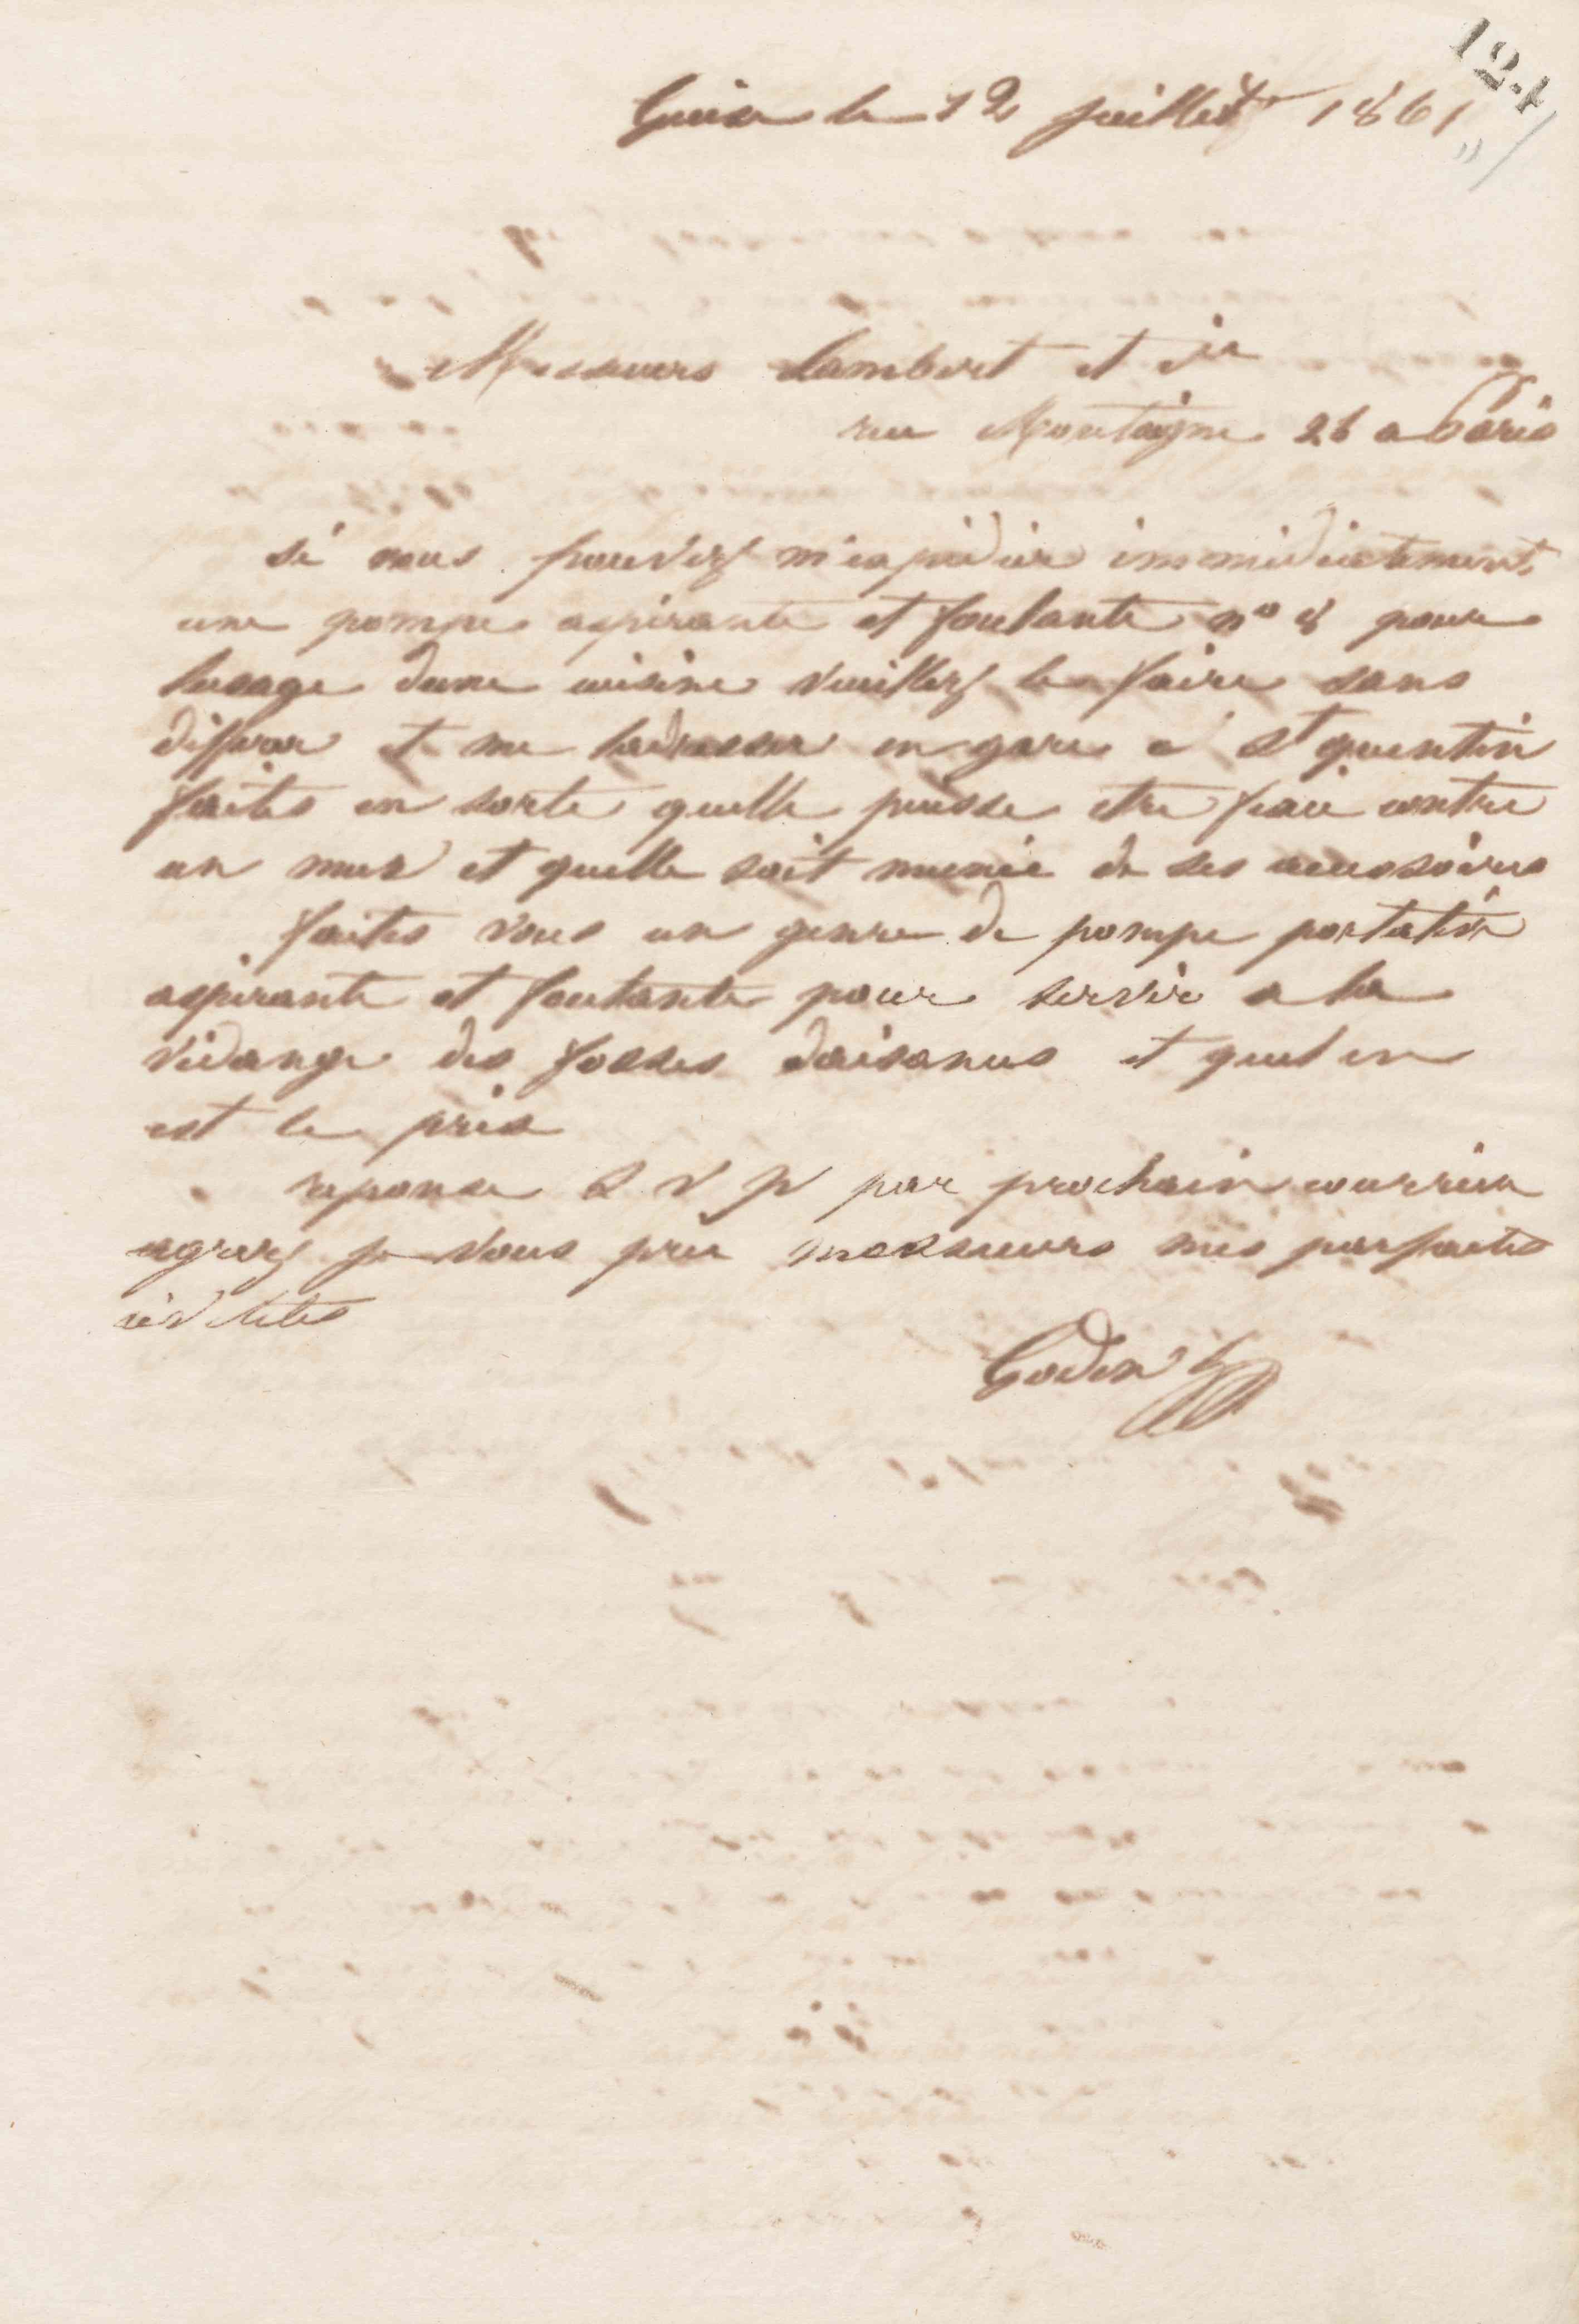 121
Guise le 12 juillet 1861
Messieurs Lambert et Cie
rue Montaigne 26 a Paris
si vous pouvez m'expédier immédiatement
une pompe aspirante et foulante n° 8 pour
lusage dune cuisine veuillez le faire sans
differer et me ladresser en gare a St quentin
faites en sorte quelle puisse etre fixée contre
un mur et quelle soit munie de ses accessoires
faites vous un genre de pompe portative
aspirante et foulante pour servir a la
vidange des fosses daisances et quel en
est le prix
reponse S V P par prochain courrier
agréez je vous prie messieurs mes parfaites
civilités
Godin